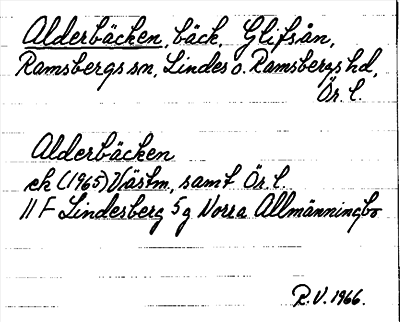 Alderbäcken, bäck, Glifsån,
Ramsbergs sn, Lindes o. Ramsbergs hd,
Ör. l.
Alderbäcken
ek (1965) Västm, samt Ör. l.
11 F Lindesberg 5 g Norra Allmänningbo
R.V. 1966.